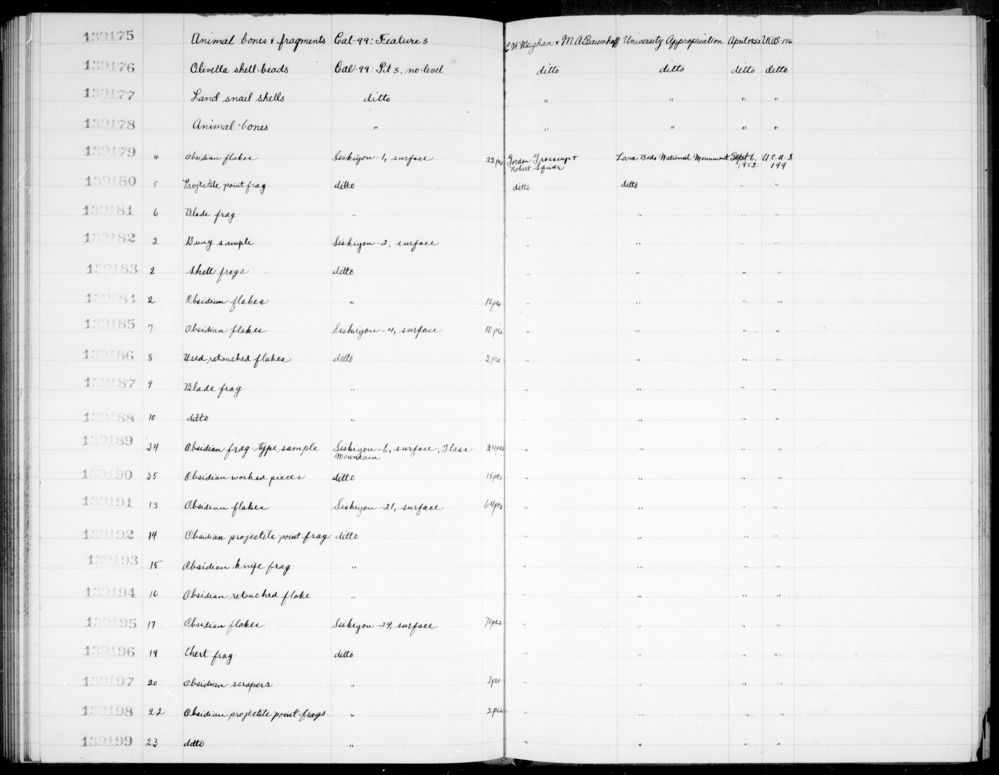 139175 Animal bones & fragments Cal-99: Feature 3 C.W. Meighan & M.A. Baumhoff University Appropriation April 1952 UCAS-176
139176 Olivella shell beads Cal-99: Pit 3, no level ditto ditto ditto ditto
139177 Land snail shells ditto " " " "
139178 Animal bones " " " " "
139179 4 Obsidian flakes Siskiyou-1, surface 22 pcs Gordon Grosscup & Robert Squier Lava Beds National Monument Sept 6, 1952 U.C.A.S 199
139180 5 Projectile point frag ditto ditto ditto " "
139181 6 Blade frag " " " " "
139182 2 Dung sample Siskiyou-2, surface " " " "
139183 2 Shell frags ditto " " " "
139184 2 Obsidian flakes " 15 pcs " " " "
139185 7 Obsidian flakes Siskiyou-4, surface 10 pcs " " " "
139186 8 Used, retouched flakes ditto 2 pcs " " " "
139187 9 Blade frag " " " " "
139188 10 ditto " " " " "
139189 24 Obsidian frag-type sample Siskiyou-6, surface, Glass Mountain 24 pcs " " " "
139190 25 Obsidian worked pieces ditto 15 pcs " " " "
139191 13 Obsidian flakes Siskiyou-21, surface 64 pcs " " " "
139192 14 Obsidian projectile point frag ditto " " " "
139193 15 Obsidian knife frag " " " " "
139194 16 Obsidian retouched flake " " " " "
139195 17 Obsidian flakes Siskiyou-24, surface pcs " " " "
139196 19 Chert frag ditto " " " "
139197 20 Obsidian scrapers " pcs " " " "
139198 22 Obsidian projectile point frags. " 2 pcs " " " "
139199 23 ditto " " " " "